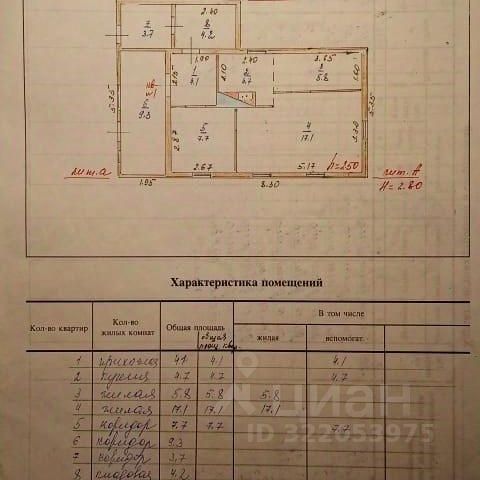 2.40
7
3.7
8
4.2
1.90
2.40
3.65
2.15
1
4.1
2.10
2
4.7
3
5.8
1.90
5.35
6
9.3
5.35
5
7.7
2.87
4
17.1
3.30
2.67
5.17
h=2.50
лит.а
1.95
8.30
лит. А
H=2.80
Характеристика помещений
Кол-во квартир
Кол-во жилых комнат
Общая площадь
общая площ. квар.
В том числе
жилая
вспомогат.
1 прихожая 4.1 4.1 4.1
2 кухня 4.7 4.7 4.7
3 жилая 5.8 5.8 5.8
4 жилая 17.1 17.1 17.1
5 коридор 7.7 7.7 7.7
6 коридор 9.3
7 коридор 3.7
8 кладовая 4.2
циан
ID 322053975